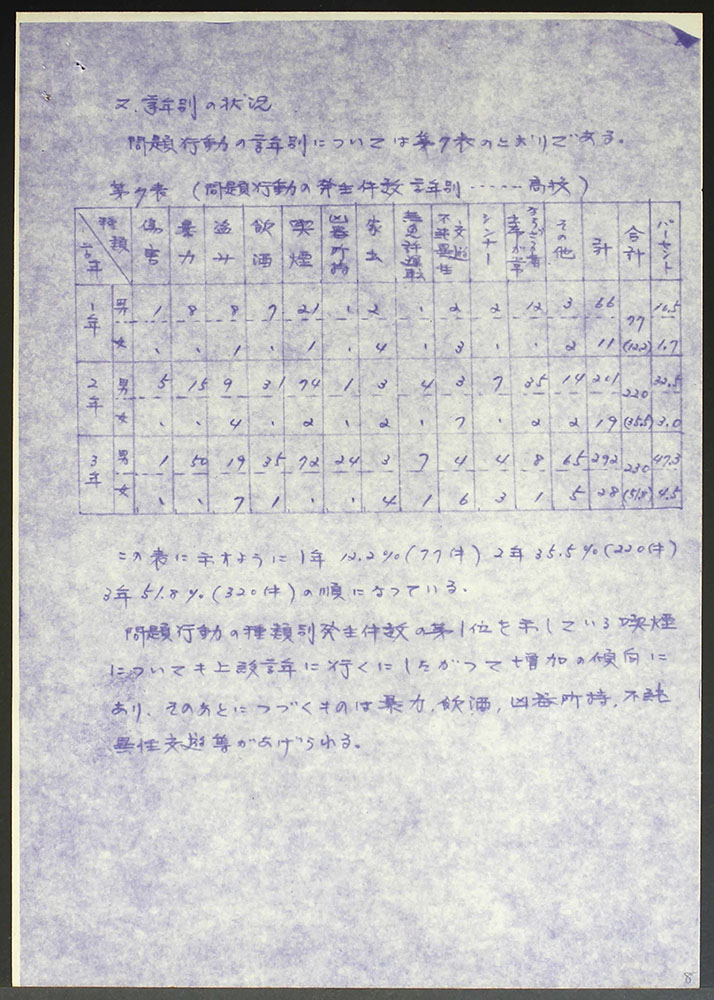 ヌ.学年別の状況
問題行動の学年別については第9表のとおりである。
第9表 (問題行動の発生件数 学年別……高校)
種類 学年 傷害 暴力 盗み 飲酒 喫煙 凶器所持 家出 無免許運転 不純異性交遊 シンナー その他 計 合計 パーセント
1年 男 1 8 8 7 21 ・ 2 ・ 2 2 12 3 66 77 16.5
女 ・ ・ 1 ・ 1 ・ 4 ・ 3 ・ ・ 2 11 (12.2) 1.7
2年 男 5 15 9 31 74 1 3 4 3 7 35 14 201 220 32.5
女 ・ ・ 4 ・ 2 ・ 2 ・ 7 ・ 2 2 19 (35.5) 3.0
3年 男 1 50 19 35 72 24 3 7 4 4 8 65 292 230 47.3
女 ・ ・ 7 1 ・ ・ 4 1 6 3 1 5 28 (51.8) 4.5
この表に示すように1年 12.2%(77件) 2年 35.5%(220件)
3年 51.8%(320件)の順になっている。
問題行動の種類別発生件数の第1位を示している喫煙
についても上級学年に行くにしたがって増加の傾向に
あり、そのあとにつづくものは暴力,飲酒,凶器所持,不純
異性交遊等があげられる。
8